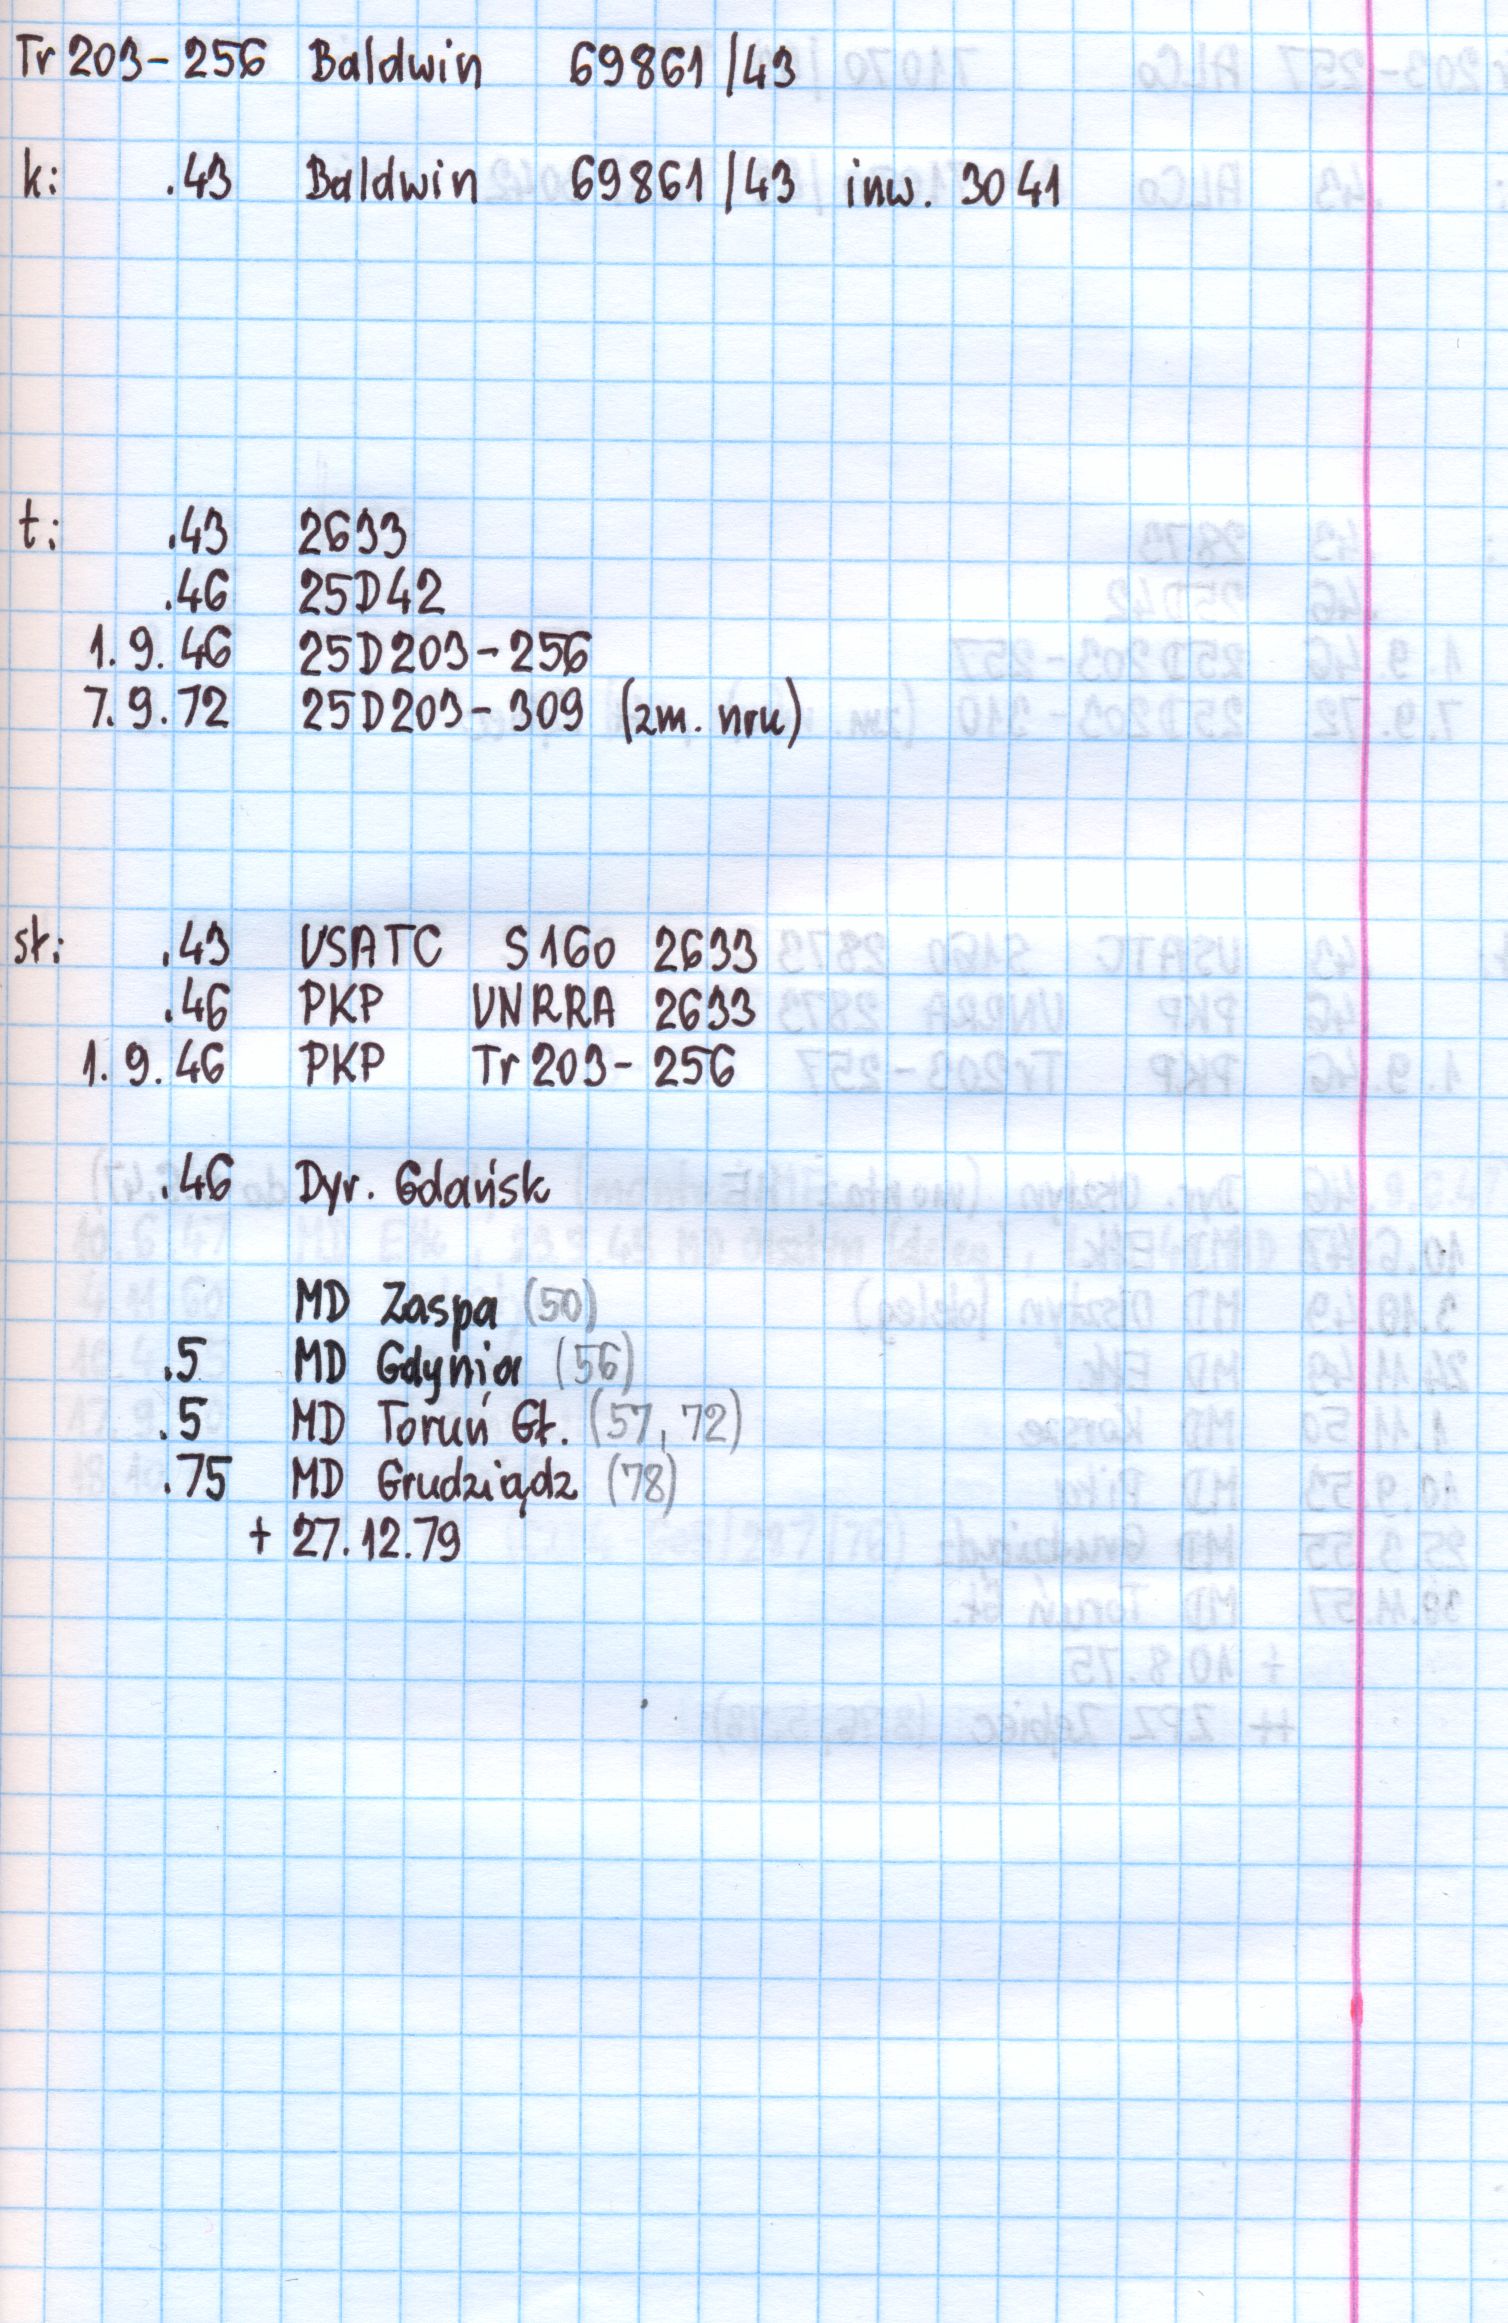 Tr 203-256 Baldwin 69861/43
k: .43 Baldwin 69861/43 inw. 3041
t: .43 2633
.46 25D42
1.9.46 25D203-256
7.9.72 25D203-309 (zm. nru)
sł: .43 USATC S160 2633
.46 PKP UNRRA 2633
1.9.46 PKP Tr 203-256
.46 Dyr. Gdańsk
MD Zaspa (50)
.5 MD Gdynia (56)
.5 MD Toruń Gł. (57, 72)
.75 MD Grudziądz (78)
+ 27.12.79